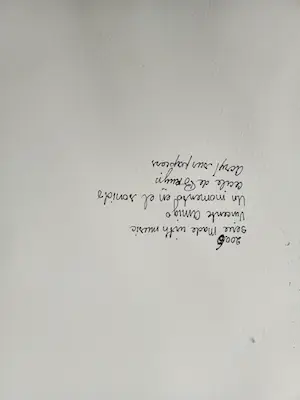 2006
serie Made with music
Vincente Amigo
Un momento en el sonido
Cecile de Bruyn
Acryl sur papiers